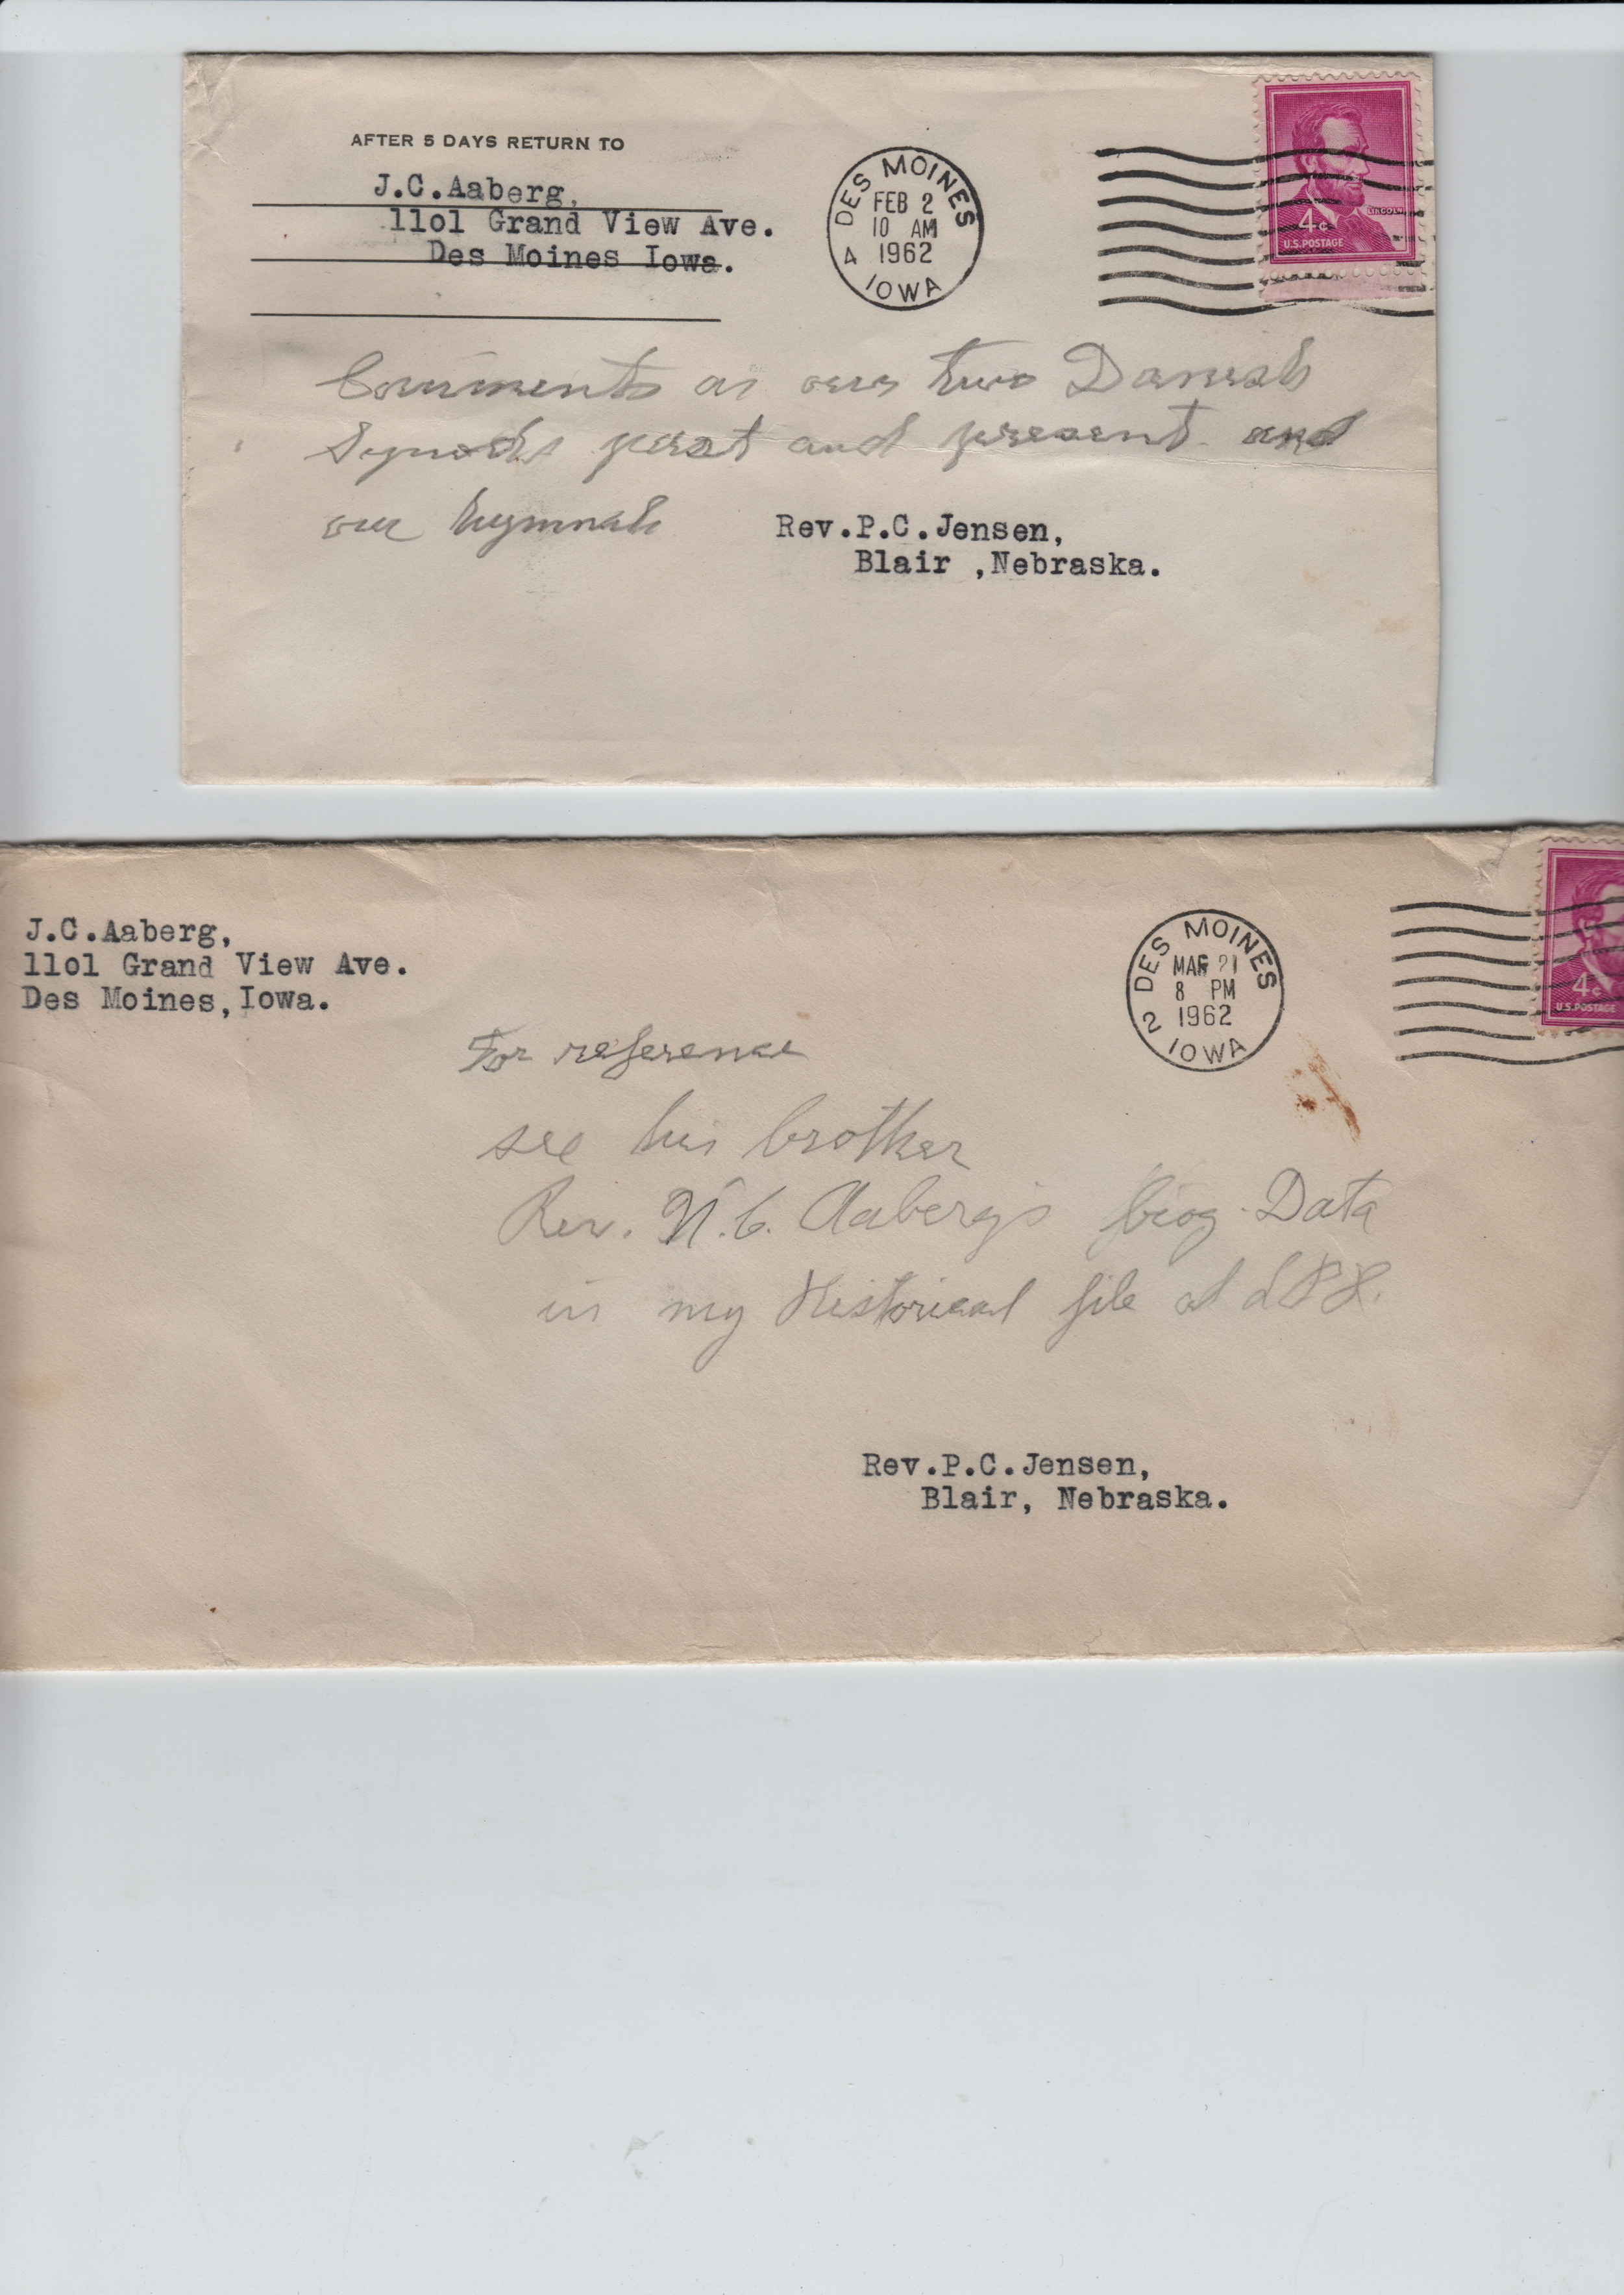 AFTER 5 DAYS RETURN TO
J.C.Aaberg,
11o1 Grand View Ave.
Des Moines Iowa.
DES MOINES
FEB 2
10 AM
4 1962
IOWA
LINCOLN
4¢
U.S. POSTAGE
Comments on our two Danish
Synods past and present and
our hymnals
Rev.P.C.Jensen,
Blair ,Nebraska.
J.C.Aaberg,
11o1 Grand View Ave.
Des Moines,Iowa.
DES MOINES
MAR 21
8 PM
2 1962
IOWA
4¢
U.S. POSTAGE
For reference
see his brother
Rev. N.C. Aaberg's biog. Data
in my Historical file at
Rev.P.C.Jensen,
Blair, Nebraska.